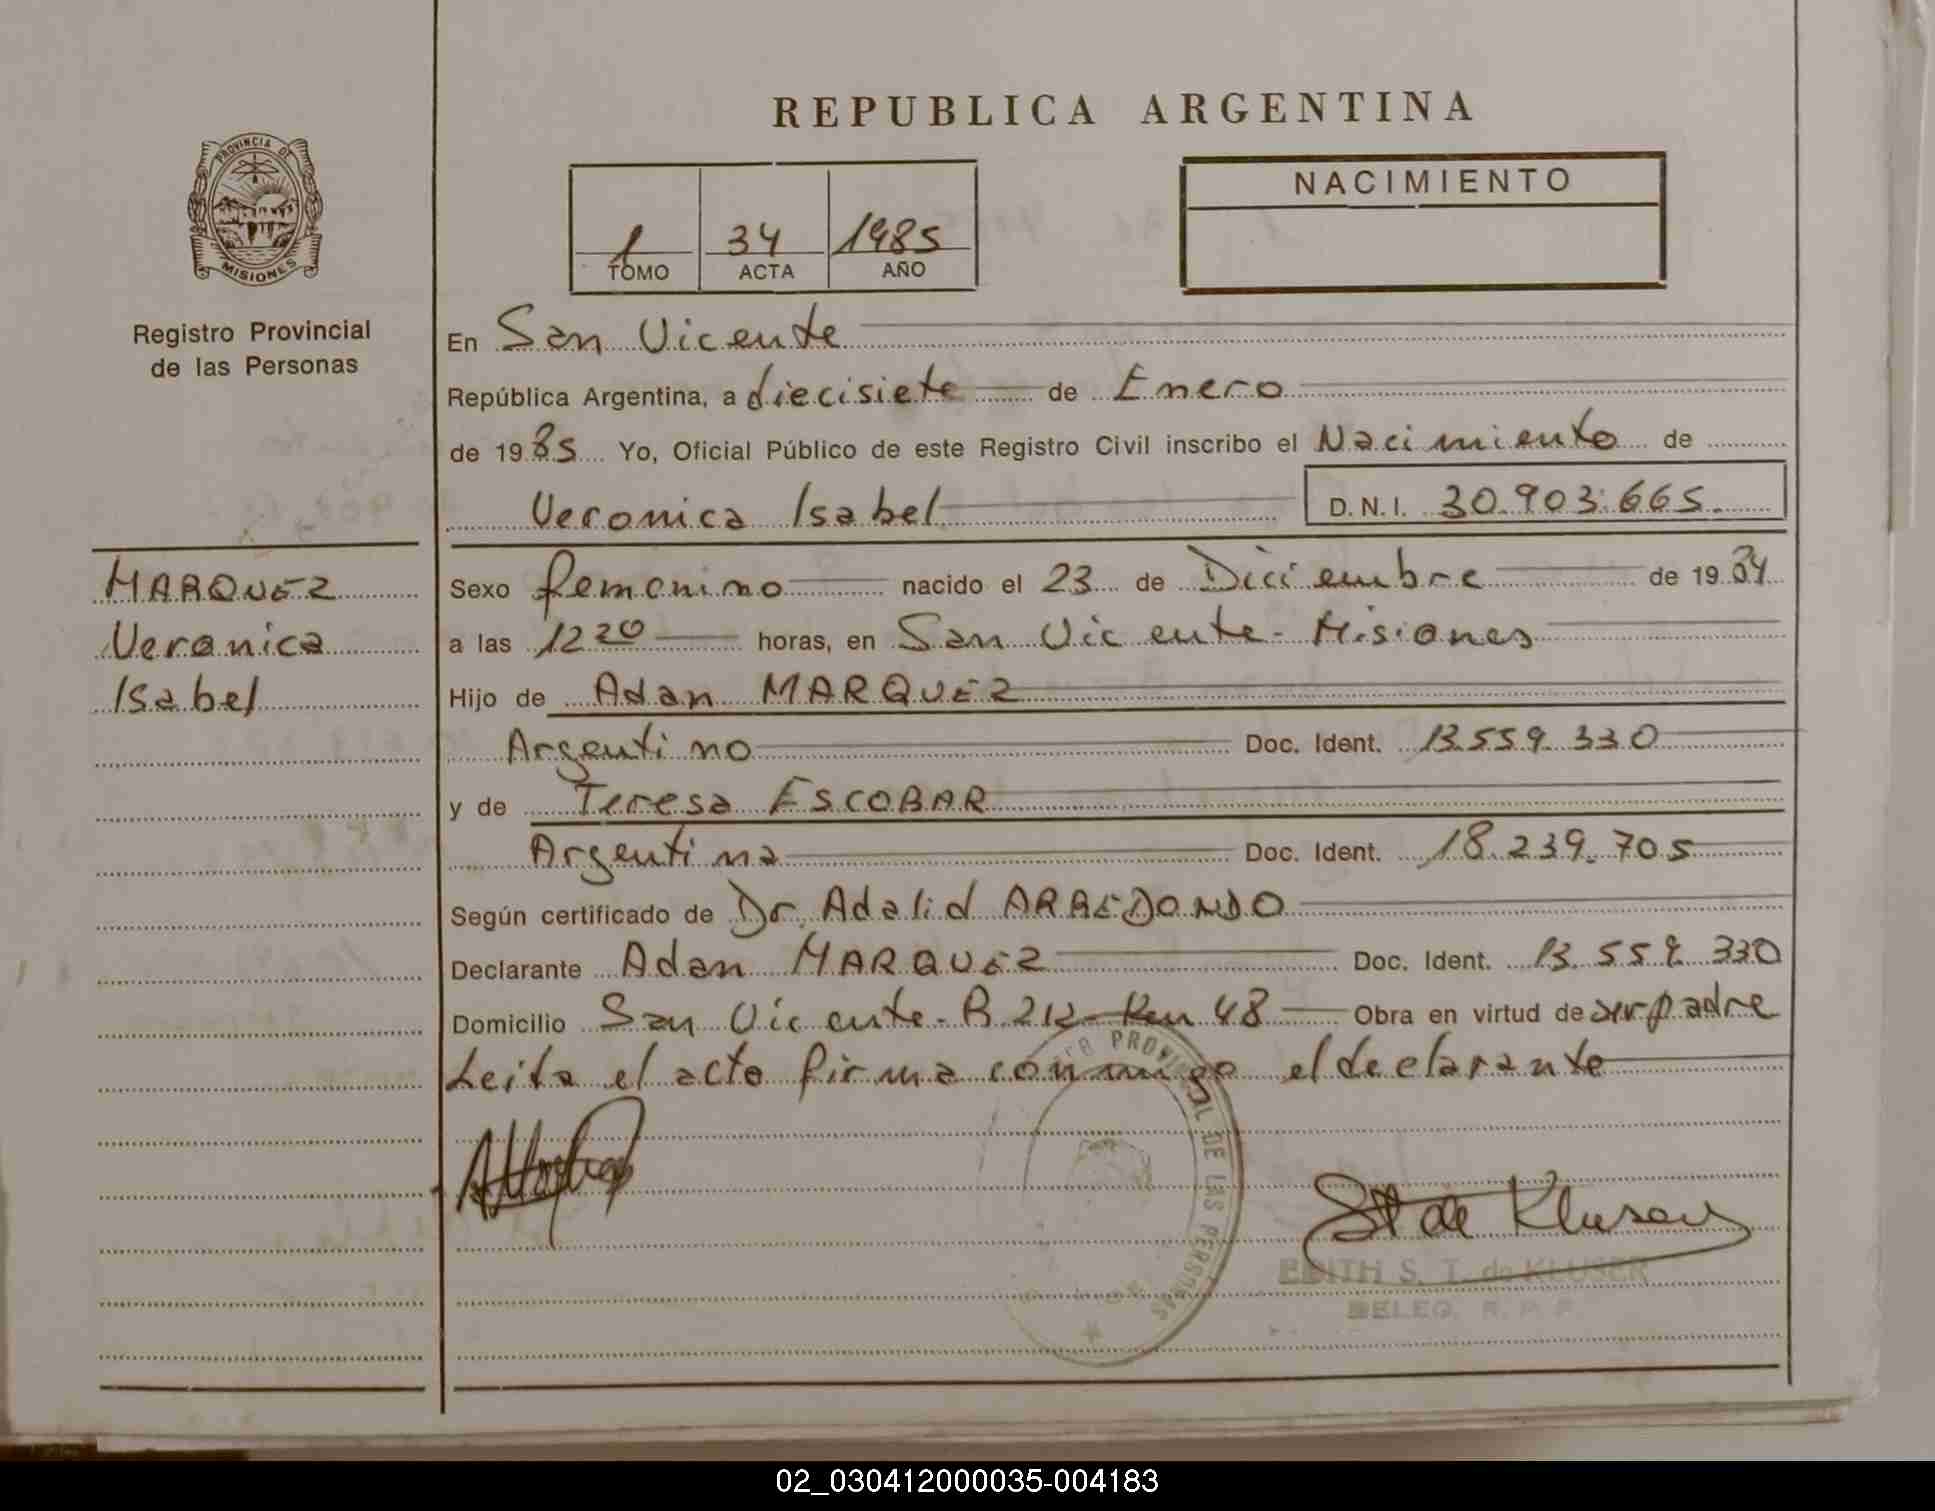 REPUBLICA ARGENTINA
PROVINCIA DE
MISIONES
Registro Provincial
de las Personas
1 34 1985
TOMO ACTA AÑO
NACIMIENTO
En San Vicente
República Argentina, a diecisiete de Enero
de 1985 Yo, Oficial Público de este Registro Civil inscribo el Nacimiento de
Veronica Isabel D.N.I. 30.903.665.
MARQUEZ
Veronica
Isabel
Sexo femenino nacido el 23 de Diciembre de 1984
a las 12 20 horas, en San Vicente - Misiones
Hijo de Adan MARQUEZ
Argentino Doc. Ident. 13.559.330
y de Teresa ESCOBAR
Argentina Doc. Ident. 18.239.705
Según certificado de Dr. Adalid ARREDONDO
Declarante Adan MARQUEZ Doc. Ident. 13.559.330
Domicilio San Vicente - R. 212 - Km 48 Obra en virtud de ser padre
Leita el acto firma conmigo el declarante
PROVINCIAL DE LAS PERSONAS
St de Kluser
EDITH S. T. de KLUSER
DELEG. R. P. P.
02_030412000035-004183